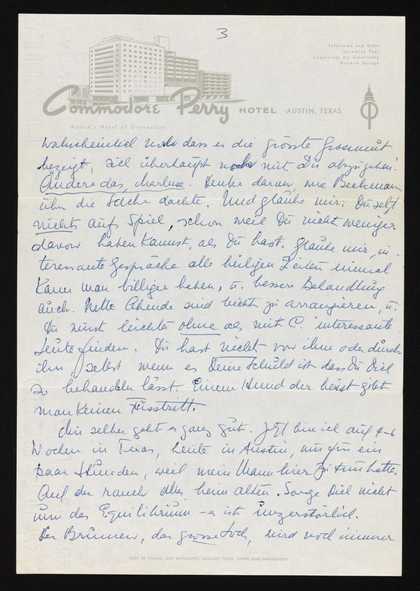 3
Commodore Perry HOTEL · AUSTIN, TEXAS
wahrscheinlich noch dass er die grösste Grossmut
bezeigt, sich überhaupt noch mit Dir abzugeben!
Ändere das, Marlene. Denke daran, wie
über die Sache dachte. Und glaube mir: Du setzt
nichts aufs Spiel, schon weil Du nicht weniger
davon haben kannst, als Du hast. Glaube mir, in-
teressante Gespräche alle heiligen Zeiten einmal
kann man billiger haben, u. bessere Behandlung
auch. Nette Abende sind leicht zu arrangieren, u.
Du wirst leichter ohne als mit C. interessante
Leute finden. Du hast nichts von ihm oder durch
ihn, selbst wenn es Deine Schuld ist dass Du Dich
so behandeln lässt. Einem Hund der beisst gibt
man keinen Fusstritt.
Mir selber geht es ganz gut. Jetzt bin ich auf
Wochen in Texas, heute in Austin, nur für ein
paar Stunden, weil mein Mann hier zu tun hatte.
Auf der ranch alles beim alten. Sorge Dich nicht
um das Equilibrium - es ist unzerstörlich.
Der Brunnen, das grosse Loch, wird noch immer